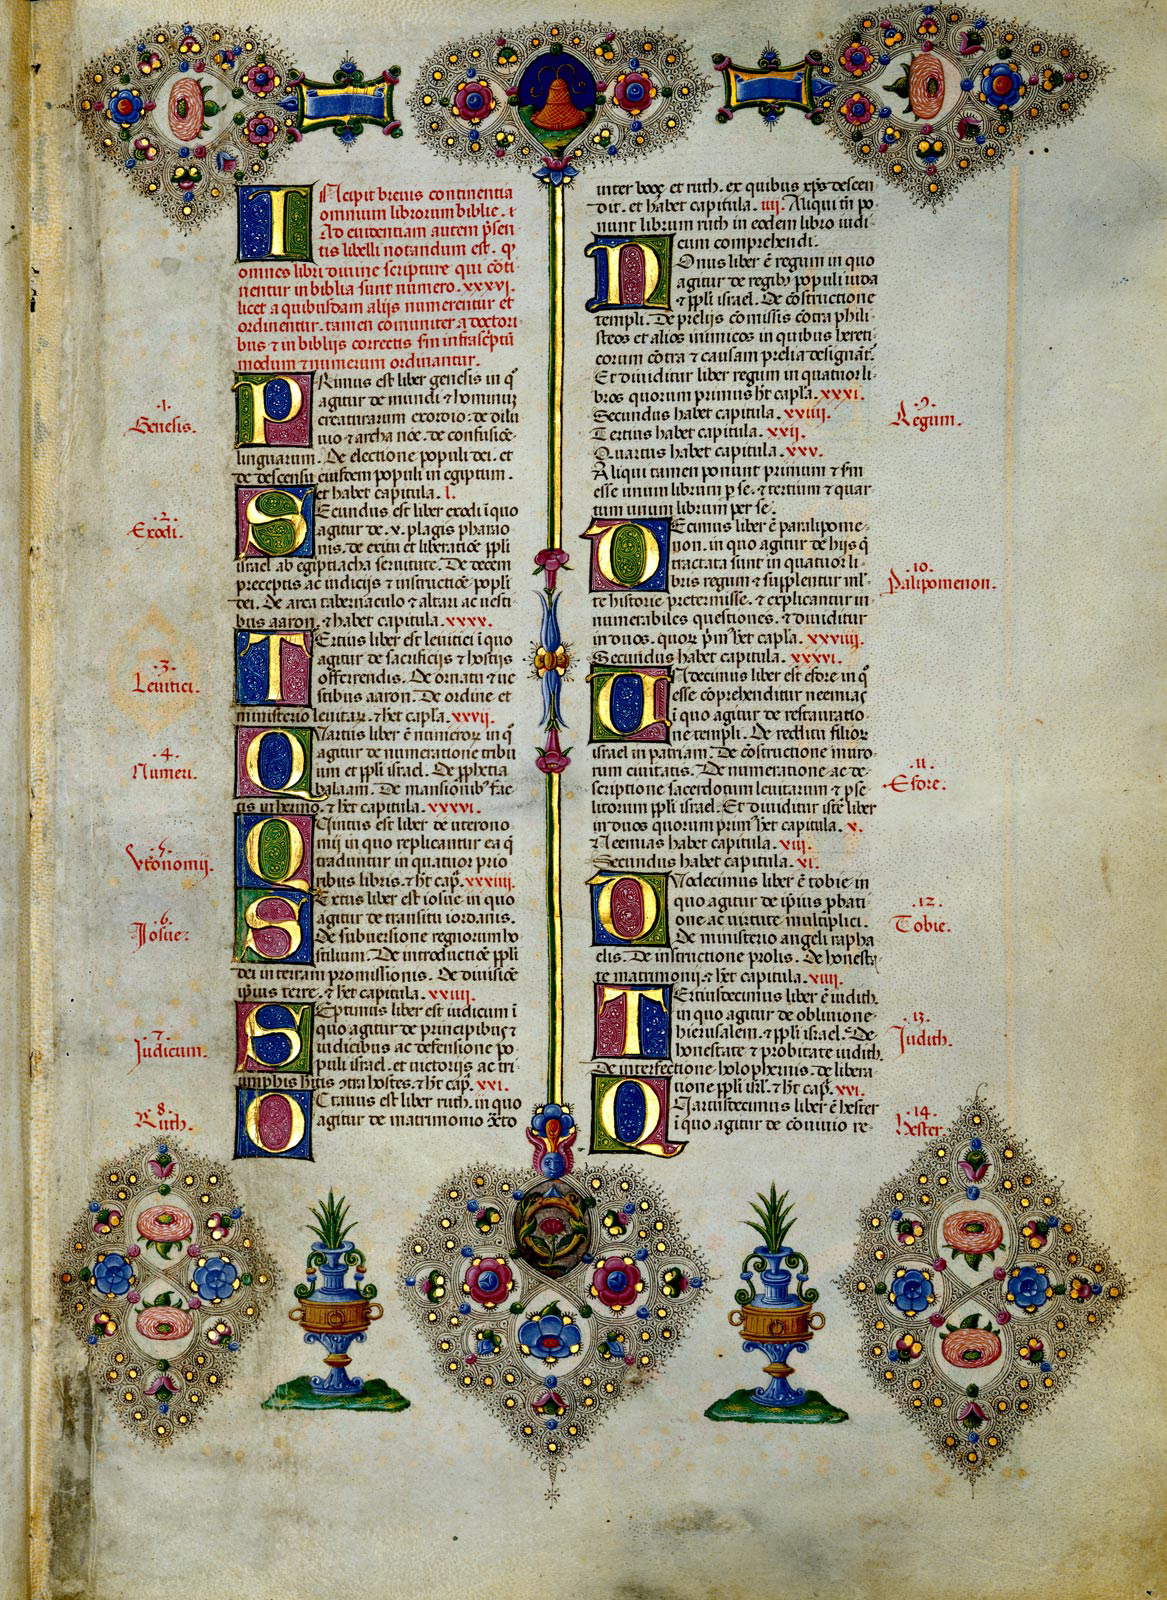 INcipit brevis continentia
omnium librorum biblie. i
Ad evidentiam autem p̄sen
tis libelli notandum est. q̄
omnes libri divine scripture qui cōti
nentur in biblia sunt numero .xxxvj.
licet a quibusdam alijs numerentur et
ordinentur. tamen comuniter a doctori
bus ⁊ in biblijs correctis s̄m infrasc̄ptū
modum ⁊ numerum ordinantur.
PRimus est liber genesis in q̊
agitur de mundi ⁊ hominis
creaturarum exordio. de dilu
uio ⁊ archa nōe. de confusiōe
linguarum. De electione populi dei. et
de descensu eiusdem populi in egiptum.
et habet capitula. l.
.1.
Genesis.
SEcundus est liber exodi ī quo
agitur de .v. plagis pharao
nis. de exitu et liberatiōe pp̄li
israel ab egiptiacha servitute. De decem
preceptis ac iudicijs ⁊ instructiōe popli
dei. De arca tabernaculo ⁊ altari ac vesti
bus aaron. ⁊ habet capitula. xxxx.
.2.
Exodi.
TErtius liber est levitici ī quo
agitur de sacrificijs ⁊ hostijs
offerrendis. De ornatu ⁊ ve
stibus aaron. De ordine et
ministerio levitaꝝ. ⁊ hēt capl̄a. xxvij.
.3.
Levitici.
QVartus liber ē numeroꝝ in q̊
agitur de numeratione tribu
um et pp̄li israel. De pp̄hetia
balaam. De mansionibꝰ fac
tis in heremo. ⁊ hēt capitula. xxxvi.
.4.
Numeri.
QVintus est liber deuterono
mij in quo replicantur ea q̄
traduntur in quatuor prio
ribus libris. ⁊ hēt cap̄. xxxiiij.
.5.
Vtronomij.
SExtus liber est iosue in quo
agitur de transitu iordanis.
De subversione regnorum ho
stilium. De introductiōe pp̄li
dei in terram promissionis. De divisiōe
ipsius terre. ⁊ hēt capitula. xxiiij.
6.
Josue.
SEptimus liber est iudicum ī
quo agitur de principibus ⁊
iudicibus ac defensione po
puli israel. et victorijs ac tri
umphis hītis ꝯtra hostes. ⁊ hēt cap̄. xxi.
.7.
Judicum.
OCtavus est liber ruth. in quo
agitur de matrimonio ꝯt̄to
8.
Ruth.
inter booz et ruth. ex quibus xp̄s descen
dit. et habet capitula. iiij. Aliqui tn̄ po
nunt librum ruth in eodem libro iudi
cum comprehendi.
NOnus liber ē regum in quo
agitur de regibꝰ populi iuda
⁊ pp̄li israel. De cōstructione
templi. De prelijs comissis cōtra phili
steos et alios inimicos in quibus hereti
corum cōtra ⁊ causam prelia designāt᷑.
Et dividitur liber regum in quatuor li
bros quorum primus hēt capl̄a. xxxi.
Secundus habet capitula. xxiiij.
Tertius habet capitula. xxij.
Quartus habet capitula. xxv.
Aliqui tamen ponunt primum ⁊ s̄m
esse unum librum p̱ se. ⁊ tertium ⁊ quar
tum unum librum per se.
.9.
Regum.
DEcimus liber ē paralipome
non. in quo agitur de hijs q̄
tractata sunt in quatuor li
bris regum ⁊ supplentur mĺ
te historie pretermisse. ⁊ explicantur in
numerabiles questiones. ⁊ dividitur
in duos. quoꝝ p̄m hēt capl̄a. xxviiij.
Secundus habet capitula. xxxvi.
.10.
Palipomenon.
UNdecimus liber est esdre in q̊
esse cōprehenditur neemias
ī quo agitur de restauratio
ne templi. De redditu filioꝝ
israel in patriam. De cōstructione muro
rum civitatis. De numeratione ac de
scriptione sacerdotum levitarum ⁊ p̱se
litorum pp̄li israel. Et dividitur iste liber
in duos quorum prim̄ hēt capitula. x.
⁊ Neemias habet capitula. xiij.
Secundus habet capitula. xi.
.11.
Esdre.
DVodecimus liber ē tobie in
quo agitur de ip̄ius p̱bati
one ac virtute multiplici.
De ministerio angeli rapha
elis. De instructione prolis. De honesta
te matrimonij. ⁊ hēt capitula. xiiij.
.12.
Tobie.
TErtiusdecimus liber ē iudith.
in quo agitur de oblivione
hierusalem. ⁊ pp̄li israel. De
honestate ⁊ probitate iudith.
De interfectione holophernis. de libera
tione pp̄li isrl̄. ⁊ hēt cap̄. xvi.
.13.
Judith.
QVartusdecimus liber ē hester
ī quo agitur de cōvivio re-
.14.
Hester